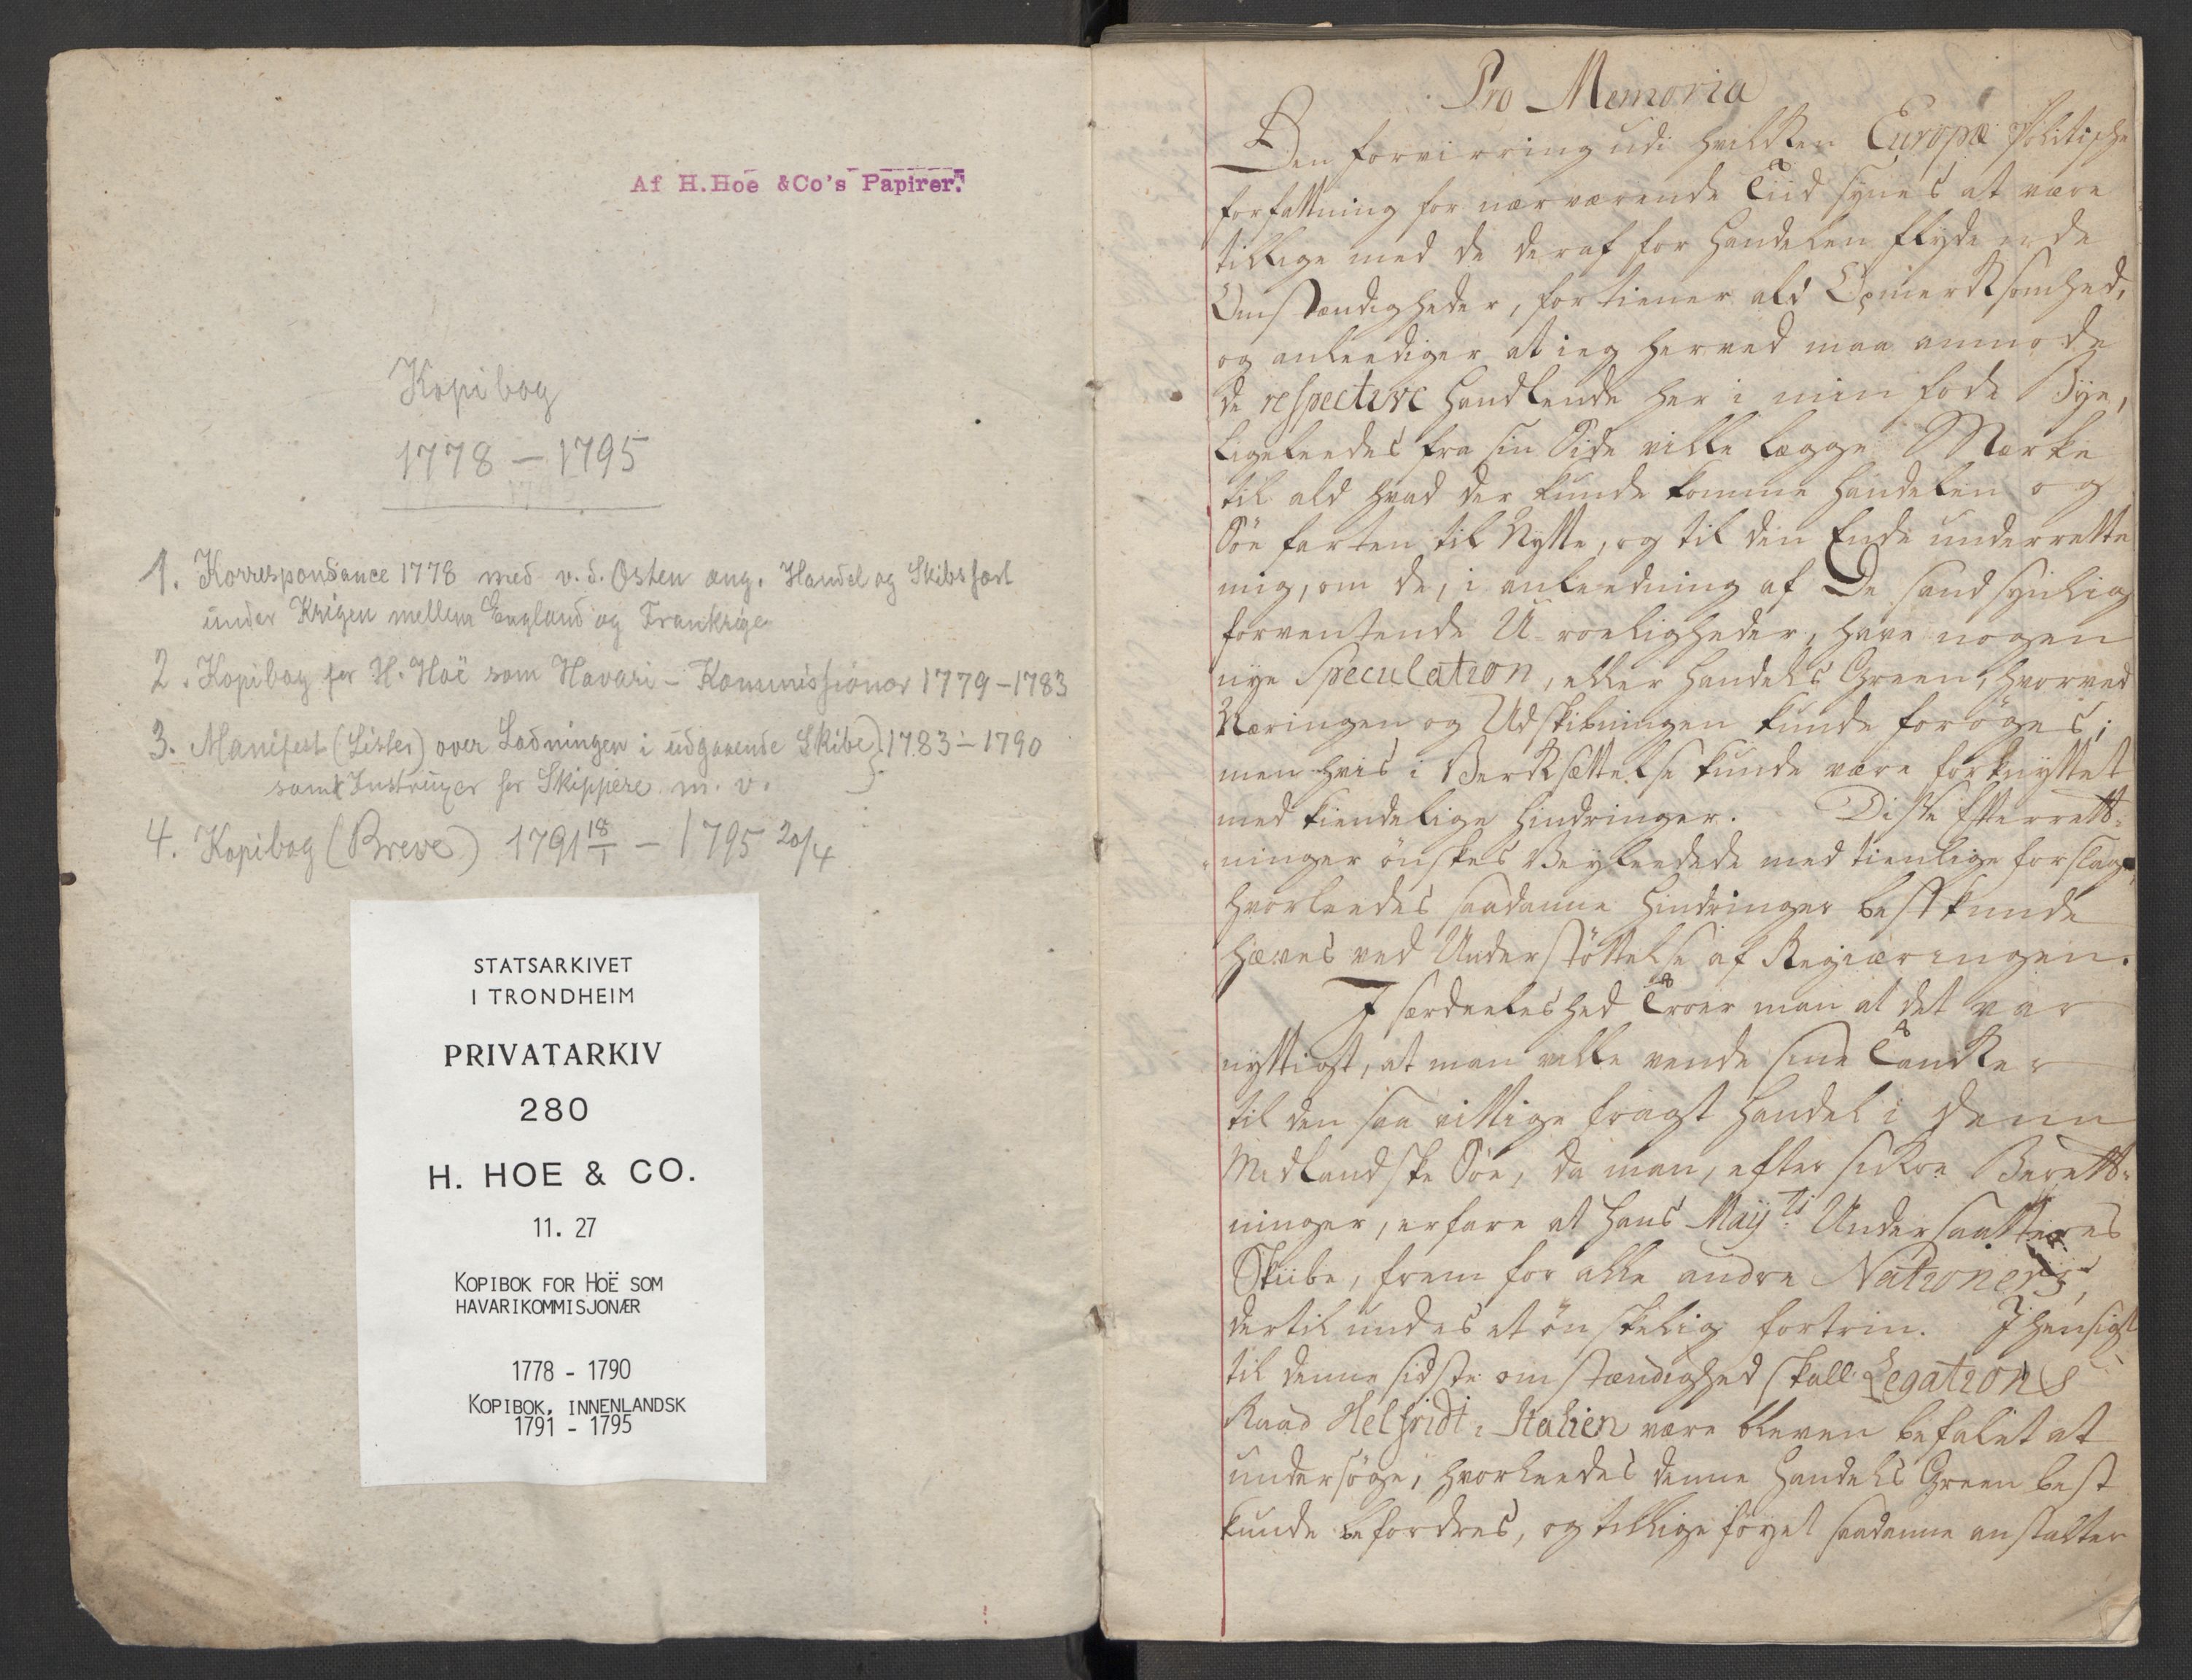 Af H. Hoë & Co's Papirer.
Kopibog
1778 – 1795
1. Korrespondance 1778 med v. d. Osten ang. Handel og Skibsfart
under Krigen mellem England og Frankrige
2. Kopibog for H. Hoë som Havari-Kommissionær 1779–1783
3. Manifest (Lister) over Ladningen i udgaaende Skibe } 1783–1790
samt Instruxer for Skippere m. v.
4. Kopibog (Breve) 1791 18/1 – 1795 20/4
STATSARKIVET
I TRONDHEIM
PRIVATARKIV
280
H. HOE & CO.
11. 27
KOPIBOK FOR HOË SOM
HAVARIKOMMISJONÆR
1778 - 1790
KOPIBOK, INNENLANDSK
1791 - 1795
Pro Memoria
Den forvirring udi hvilken Europæ Politische
forfattning for nærværende Tiid synes at være
tillige med de deraf for Handelen flydende
Omstændigheder, fortiener ald Opmerksomhed,
og anleediger at ieg herved maa anmode
de respective Handlende her i min føde Bye,
ligeleedes fra sin Side ville lægge Mærke
til ald hvad der kunde komme Handelen og
Søe farten til Nytte, og til den Ende underrette
mig, om de, i anleedning af De sandsynlig
forventende U-roeligheder, have nogen
nye Speculation, eller Handels Green, hvorved
Næringen og Udskibningen kunde forøges,
men hvis i Verksættelse kunde være forknyttet
med kiendelige Hindringer. Disse Efterrett-
ninger ønskes Beyleedede med tienlige forslag,
hvorleedes saadanne Hindringer best kunde
hæves ved Understøttelse af Regiæringen.
I særdeeleshed Troer man at det var
nyttigt, at man ville vende sine Tanker
til den saa vittige fragt Handel i denn
Midlandske Søe, da man, efter sikre Berett-
ninger, erfare at Hans May.ts Undersaatteres
Skiibe, frem for alle andre Nationers,
dertil undes et ønskelig fortrin. I Hensigt
til denne sidste omstændighed skall Legations
Raad Helfridt i Italien være bleven befalet at
undersøge, hvorleedes denne Handels Green best
kunde befordres, og tillige føyet saadanne anstalter